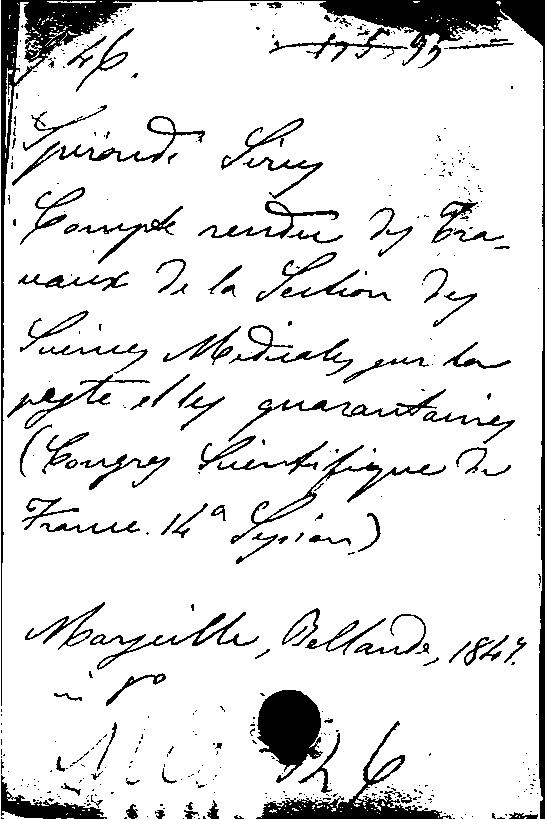 46.
Compte rendu des Tra-
vaux de la Section des
Sciences Medicales sur la
peste et les quarantaines
(Congres Scientifique de
France. 14ª Session)
Marseille, Bellande, 1847.
in 8º